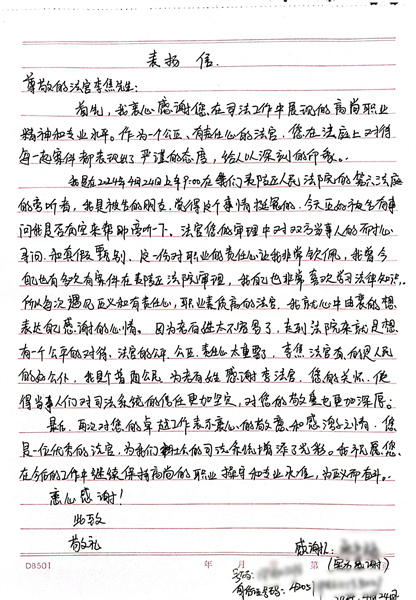 表扬信
尊敬的法官李焦先生:
首先,我衷心感谢您在司法工作中展现的高尚职业
精神和专业水平。作为一个公正、有责任心的法官,您在法庭上对待
每一起案件都表现出了严谨的态度,给人以深刻的印象。
我是在2024年4月24日上午9:00在我们襄陵区人民法院的第六法庭
的旁听者,我是被告的朋友,觉得这个事情挺冤的,今天正好被告有事
问我是否有空来帮那旁听一下。法官您的审理中对双方当事人的耐心
寻问和真假甄别,这一份对职业的责任心让我非常钦佩,我曾今
自己也有多次有案件在襄陵区法院审理,我自己也非常喜欢学习法律知识,
所以每次遇见正义和有责任心,职业素质高的法官,我就心中由衷的想
表达自己感谢的心情。因为老百姓太不容易了,走到法院来就是想
有一个公平的对待,法官的公平、公正、责任心太重要了,李焦法官有你是人民
的好公仆,我是个普通公民,为老百姓感谢李法官,您的关怀,使
得当事人们对司法系统的信任更加坚定,对您的敬意也更加深厚。
最后,再次对您的卓越工作表示衷心的敬意和感激之情,您
是一位优秀的法官,为我们社会的司法系统增添了光彩。我祝愿您
在今后的工作中继续保持高尚的职业操守和专业水准,为正义而奋斗。
衷心感谢!
此致
敬礼
感谢人:
(实名感谢)
D8501 年 月 日 第
4205
2024年4月24日